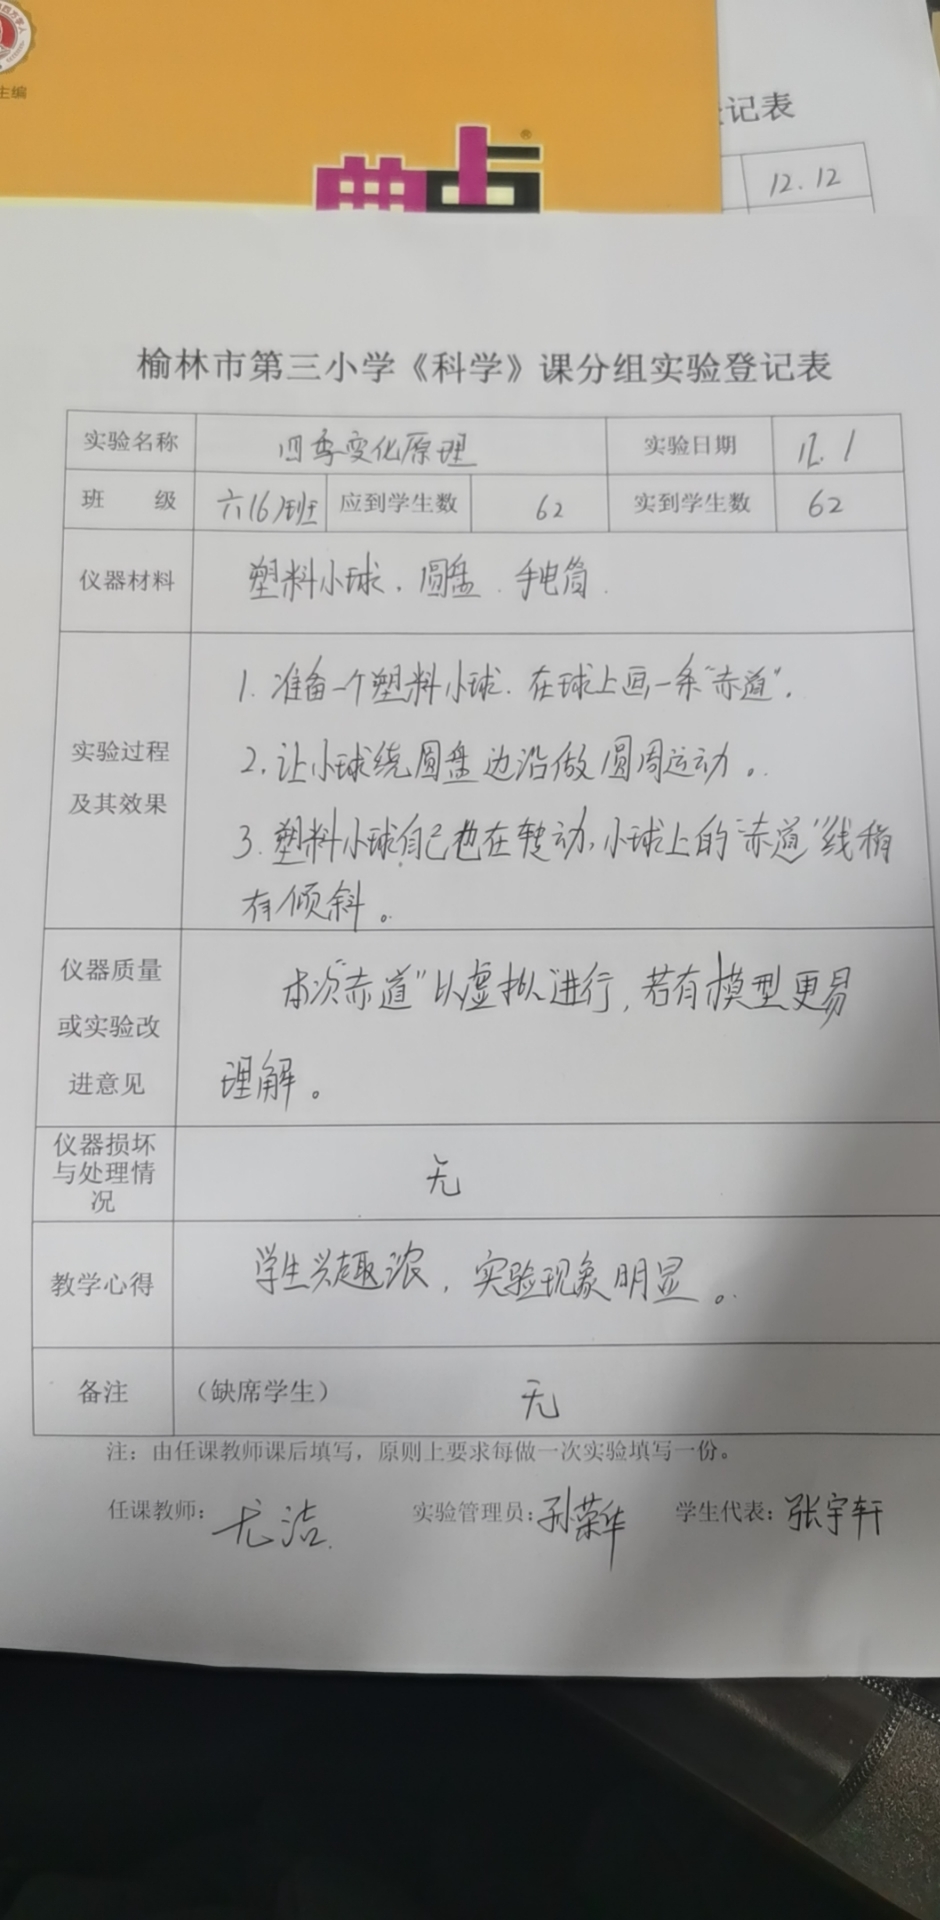 主编
典点
®
登记表
12.12
榆林市第三小学《科学》课分组实验登记表
实验名称 四季变化原理 实验日期 12.1
班 级 六(6)班 应到学生数 62 实到学生数 62
仪器材料 塑料小球、圆盘、手电筒.
1. 准备一个塑料小球.在球上画一条“赤道”.
实验过程 2.让小球绕圆盘边沿做圆周运动。
及其效果 3.塑料小球自己也在转动,小球上的“赤道”线稍
有倾斜。
仪器质量 本次“赤道”以虚拟进行,若有模型更易
或实验改
进意见 理解。
仪器损坏
与处理情 无
况
教学心得 学生兴趣浓,实验现象明显。
备注 (缺席学生) 无
注:由任课教师课后填写,原则上要求每做一次实验填写一份。
任课教师: 尤洁. 实验管理员: 孙荣华 学生代表: 张宇轩